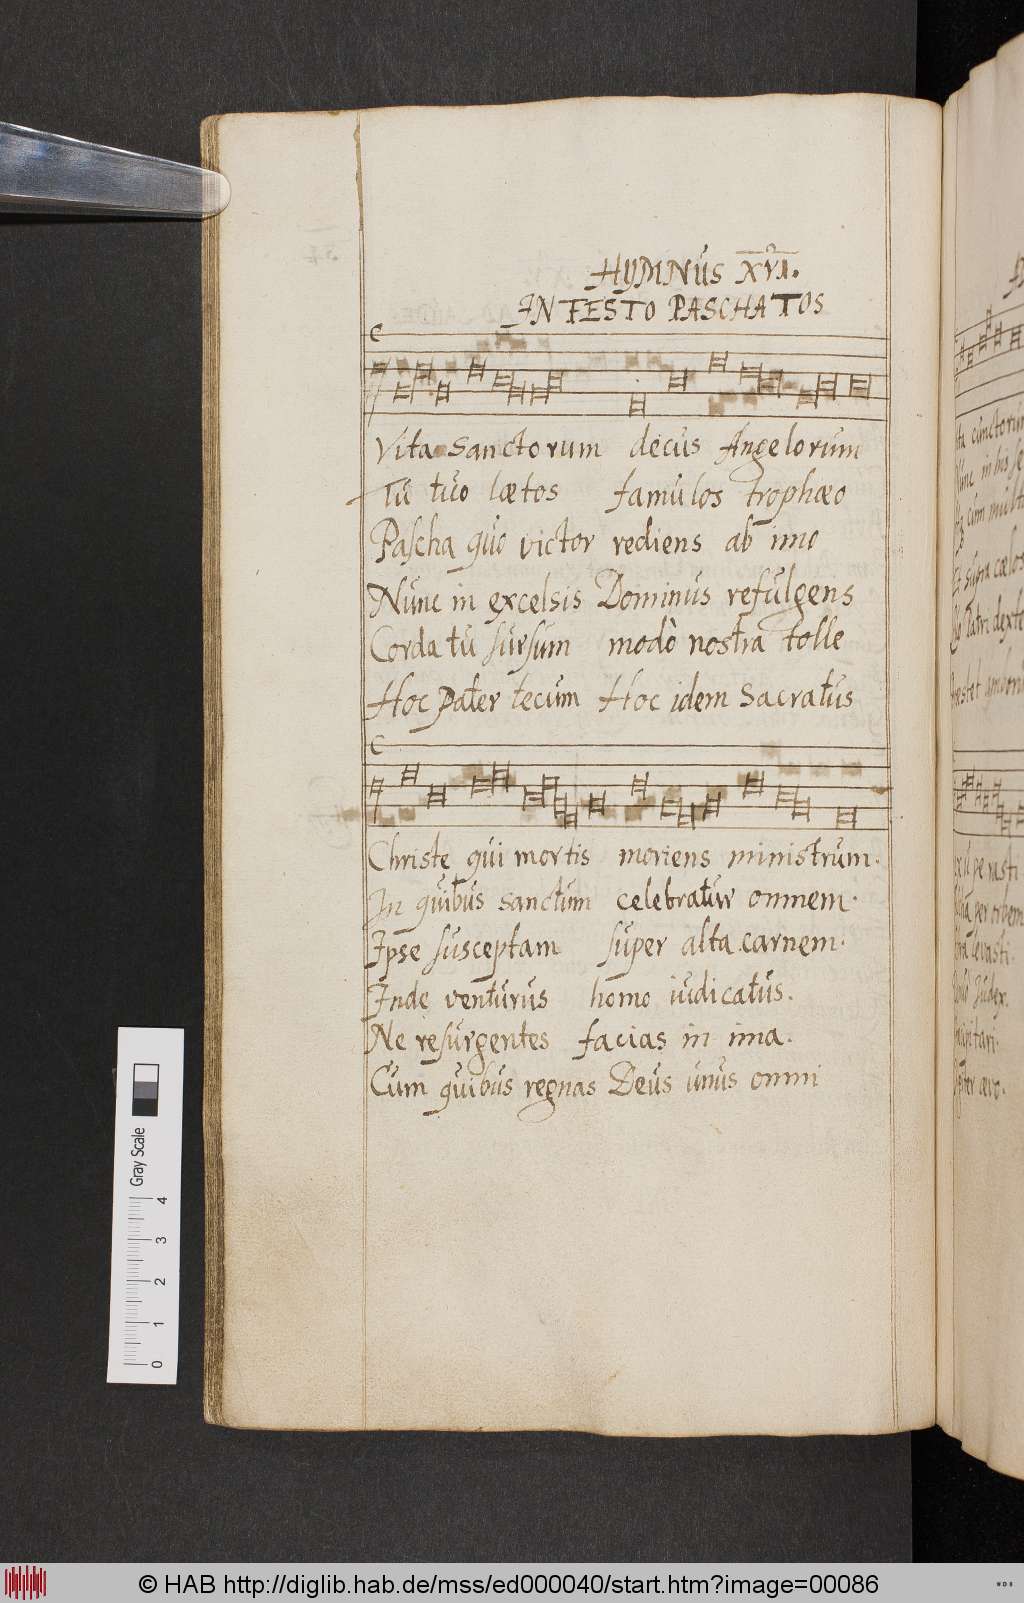 HYMNUS XVI.
IN FESTO PASCHATOS
Vita Sanctorum decus Angelorum
Tu tuo lætos famulos trophæo
Pascha quo victor rediens ab imo
Nunc in excelsis Dominus refulgens
Corda tu sursum modò nostra tolle
Hoc Pater tecum Hoc idem Sacratus
Christe qui mortis moriens ministrum.
In quibus sanctum celebratur omnem.
Ipse susceptam super alta carnem.
Inde venturus homo iudicatus.
Ne resurgentes facias in ima.
Cum quibus regnas Deus unus omni
cunctorum
Nunc in his
cum
Et supra cœlos
Patri
rasti
per orbem
levasti.
Judex.
ævo.
Gray Scale
4
3
2
1
0
© HAB http://diglib.hab.de/mss/ed000040/start.htm?image=00086
WDB